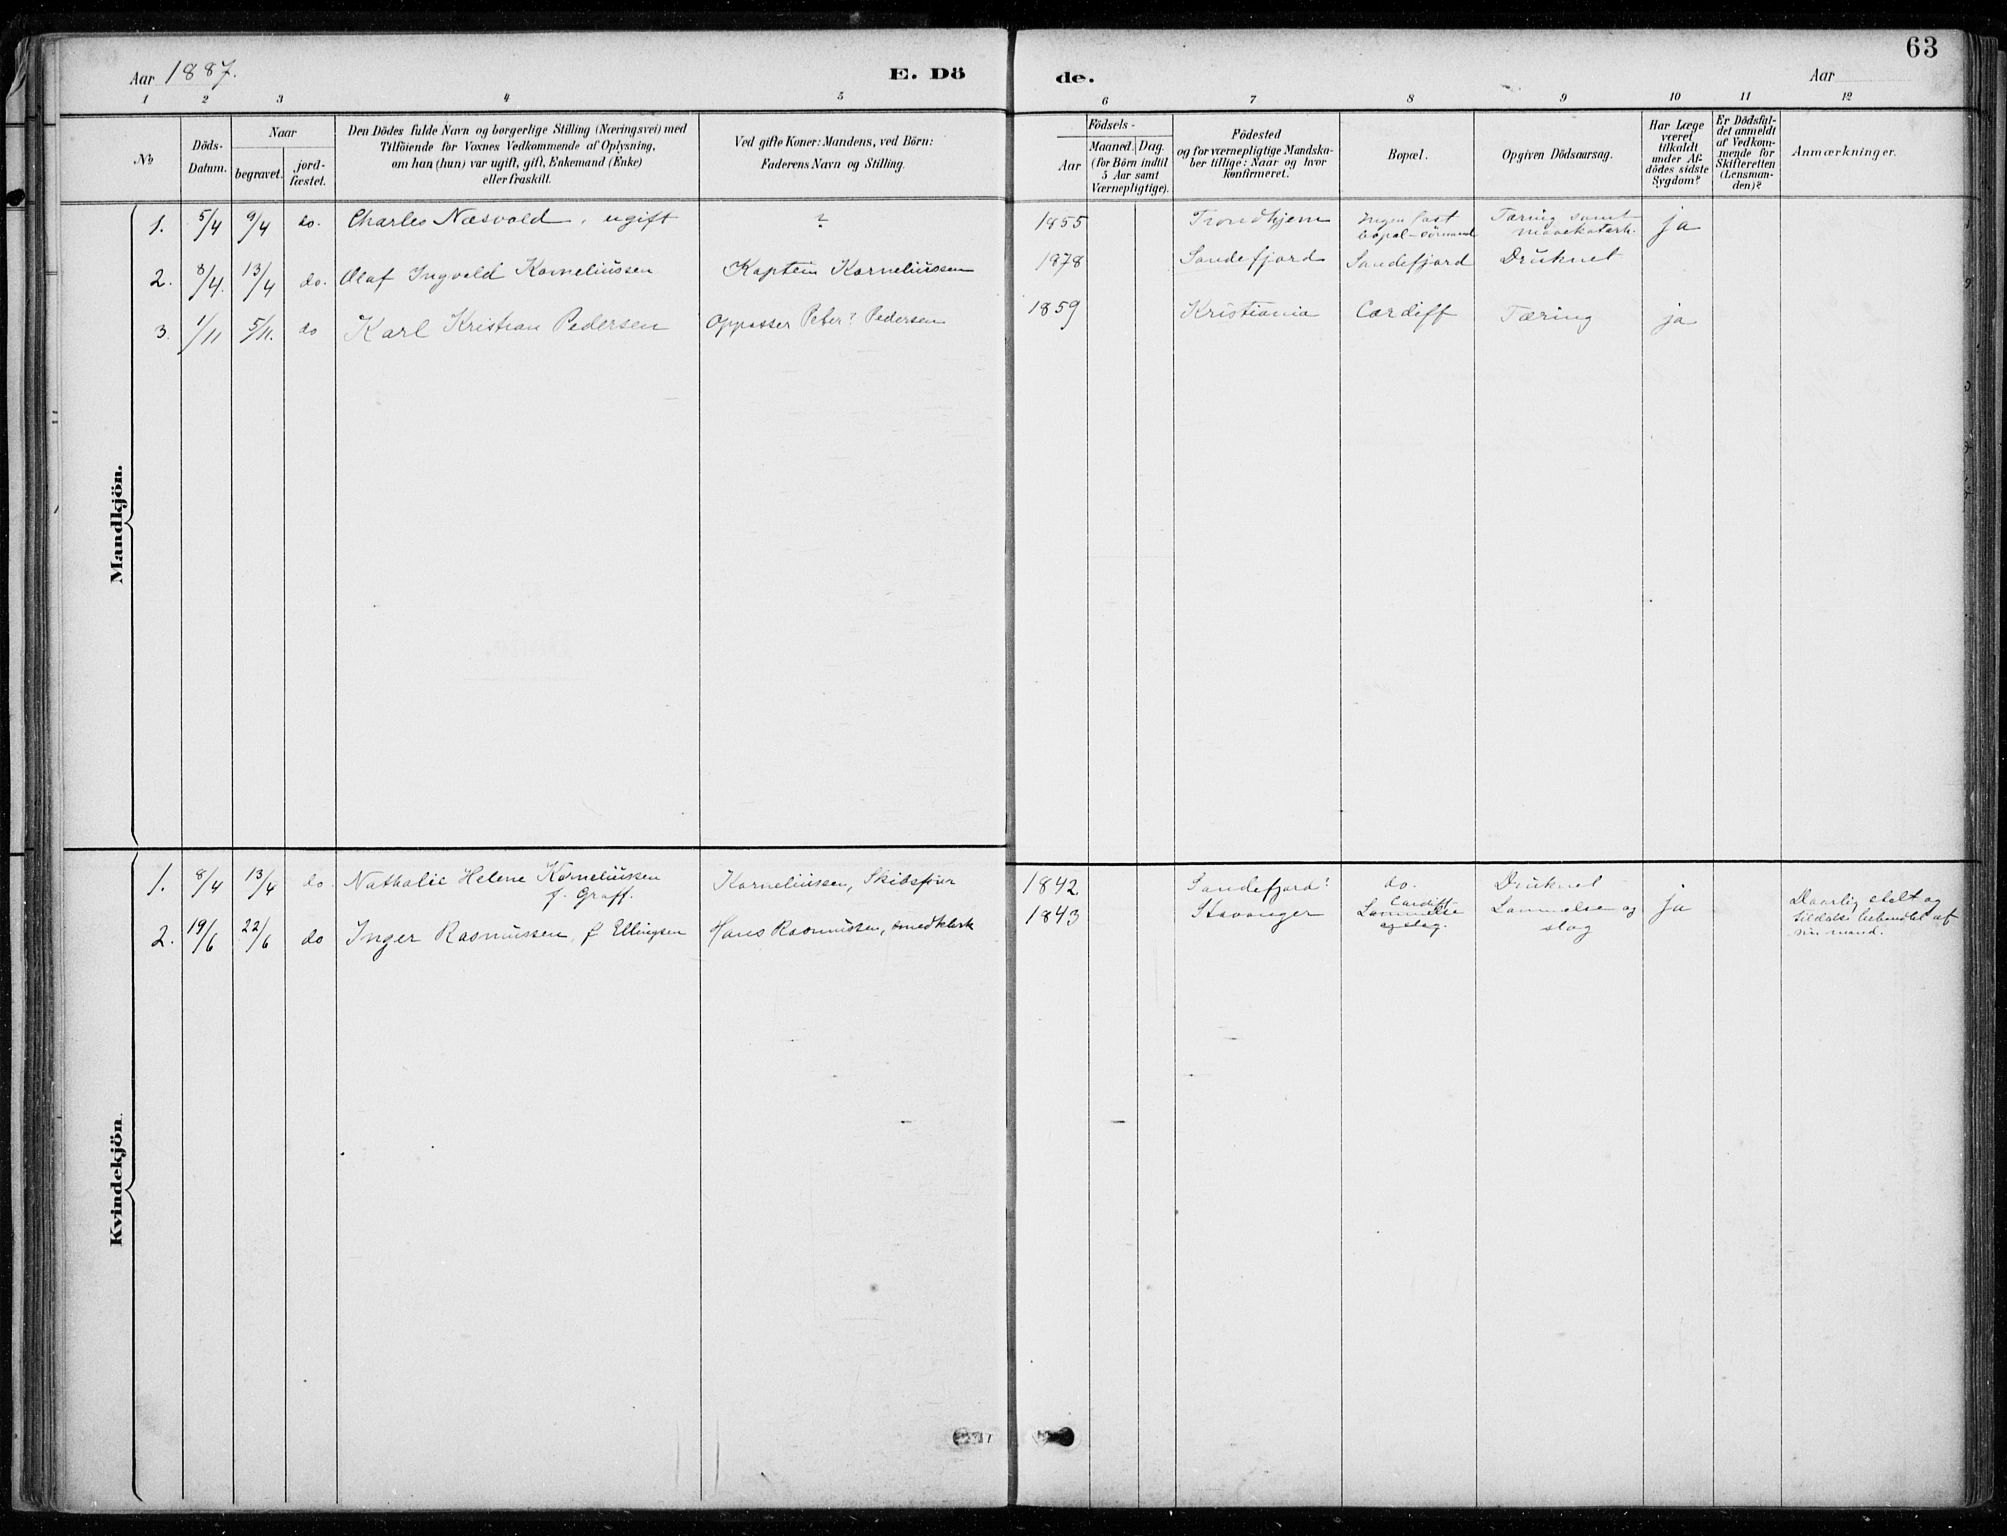 63
Aar 1887. E. Dö de. Aar
1 2 3 4 5 6 7 8 9 10 11 12
№
Döds-Datum.
Naar
begravet.
jord-fæstet.
Den Dödes fulde Navn og borgerlige Stilling (Næringsvei) med
Tilföiende for Voxnes Vedkommende af Oplysning,
om han (hun) var ugift, gift, Enkemand (Enke)
eller fraskilt.
Ved gifte Koner: Mandens, ved Börn:
Faderens Navn og Stilling.
Födsels-
Aar
Maaned. Dag.
(for Börn indtil
5 Aar samt
Værnepligtige).
Födested
og for værnepligtige Mandska-
ber tillige: Naar og hvor
Konfirmeret.
Bopæl.
Opgiven Dödsaarsag.
Har Læge
været
tilkaldt
under Af-
dödes sidste
Sygdom?
Er Dödsfal-
det anmeldt
af Vedkom-
mende for
Skifteretten
(Lensman-
den)?
Anmærkninger.
Mandkjön.
1. 5/4 9/4 do. Charles Næsvold, ugift ? 1855 Trondhjem Ingen fast bopæl - sömand Tæring samt mavekatarh. ja
2. 8/4. 13/4 do. Olaf Ingvald Korneliussen Kaptein Korneliussen 1878 Sandefjord Sandefjord Druknet
3. 1/11 5/11. do Karl Kristian Pedersen Oppasser Peter? Pedersen 1859 Kristiania Cardiff Tæring ja
Kvindekjön.
1. 8/4 13/4 do. Nathalie Helene Korneliussen f. Graff. Korneliussen, Skibsförer 1842 Sandefjord? do. Druknet
2. 19/6 22/6 do Inger Rasmussen, f Ellingsen Hans Rasmussen, 1843 Stavanger Cardiff Lammelse og slag. Lammelse og slag ja Daarlig stelt og tildels behandlet af sin mand.